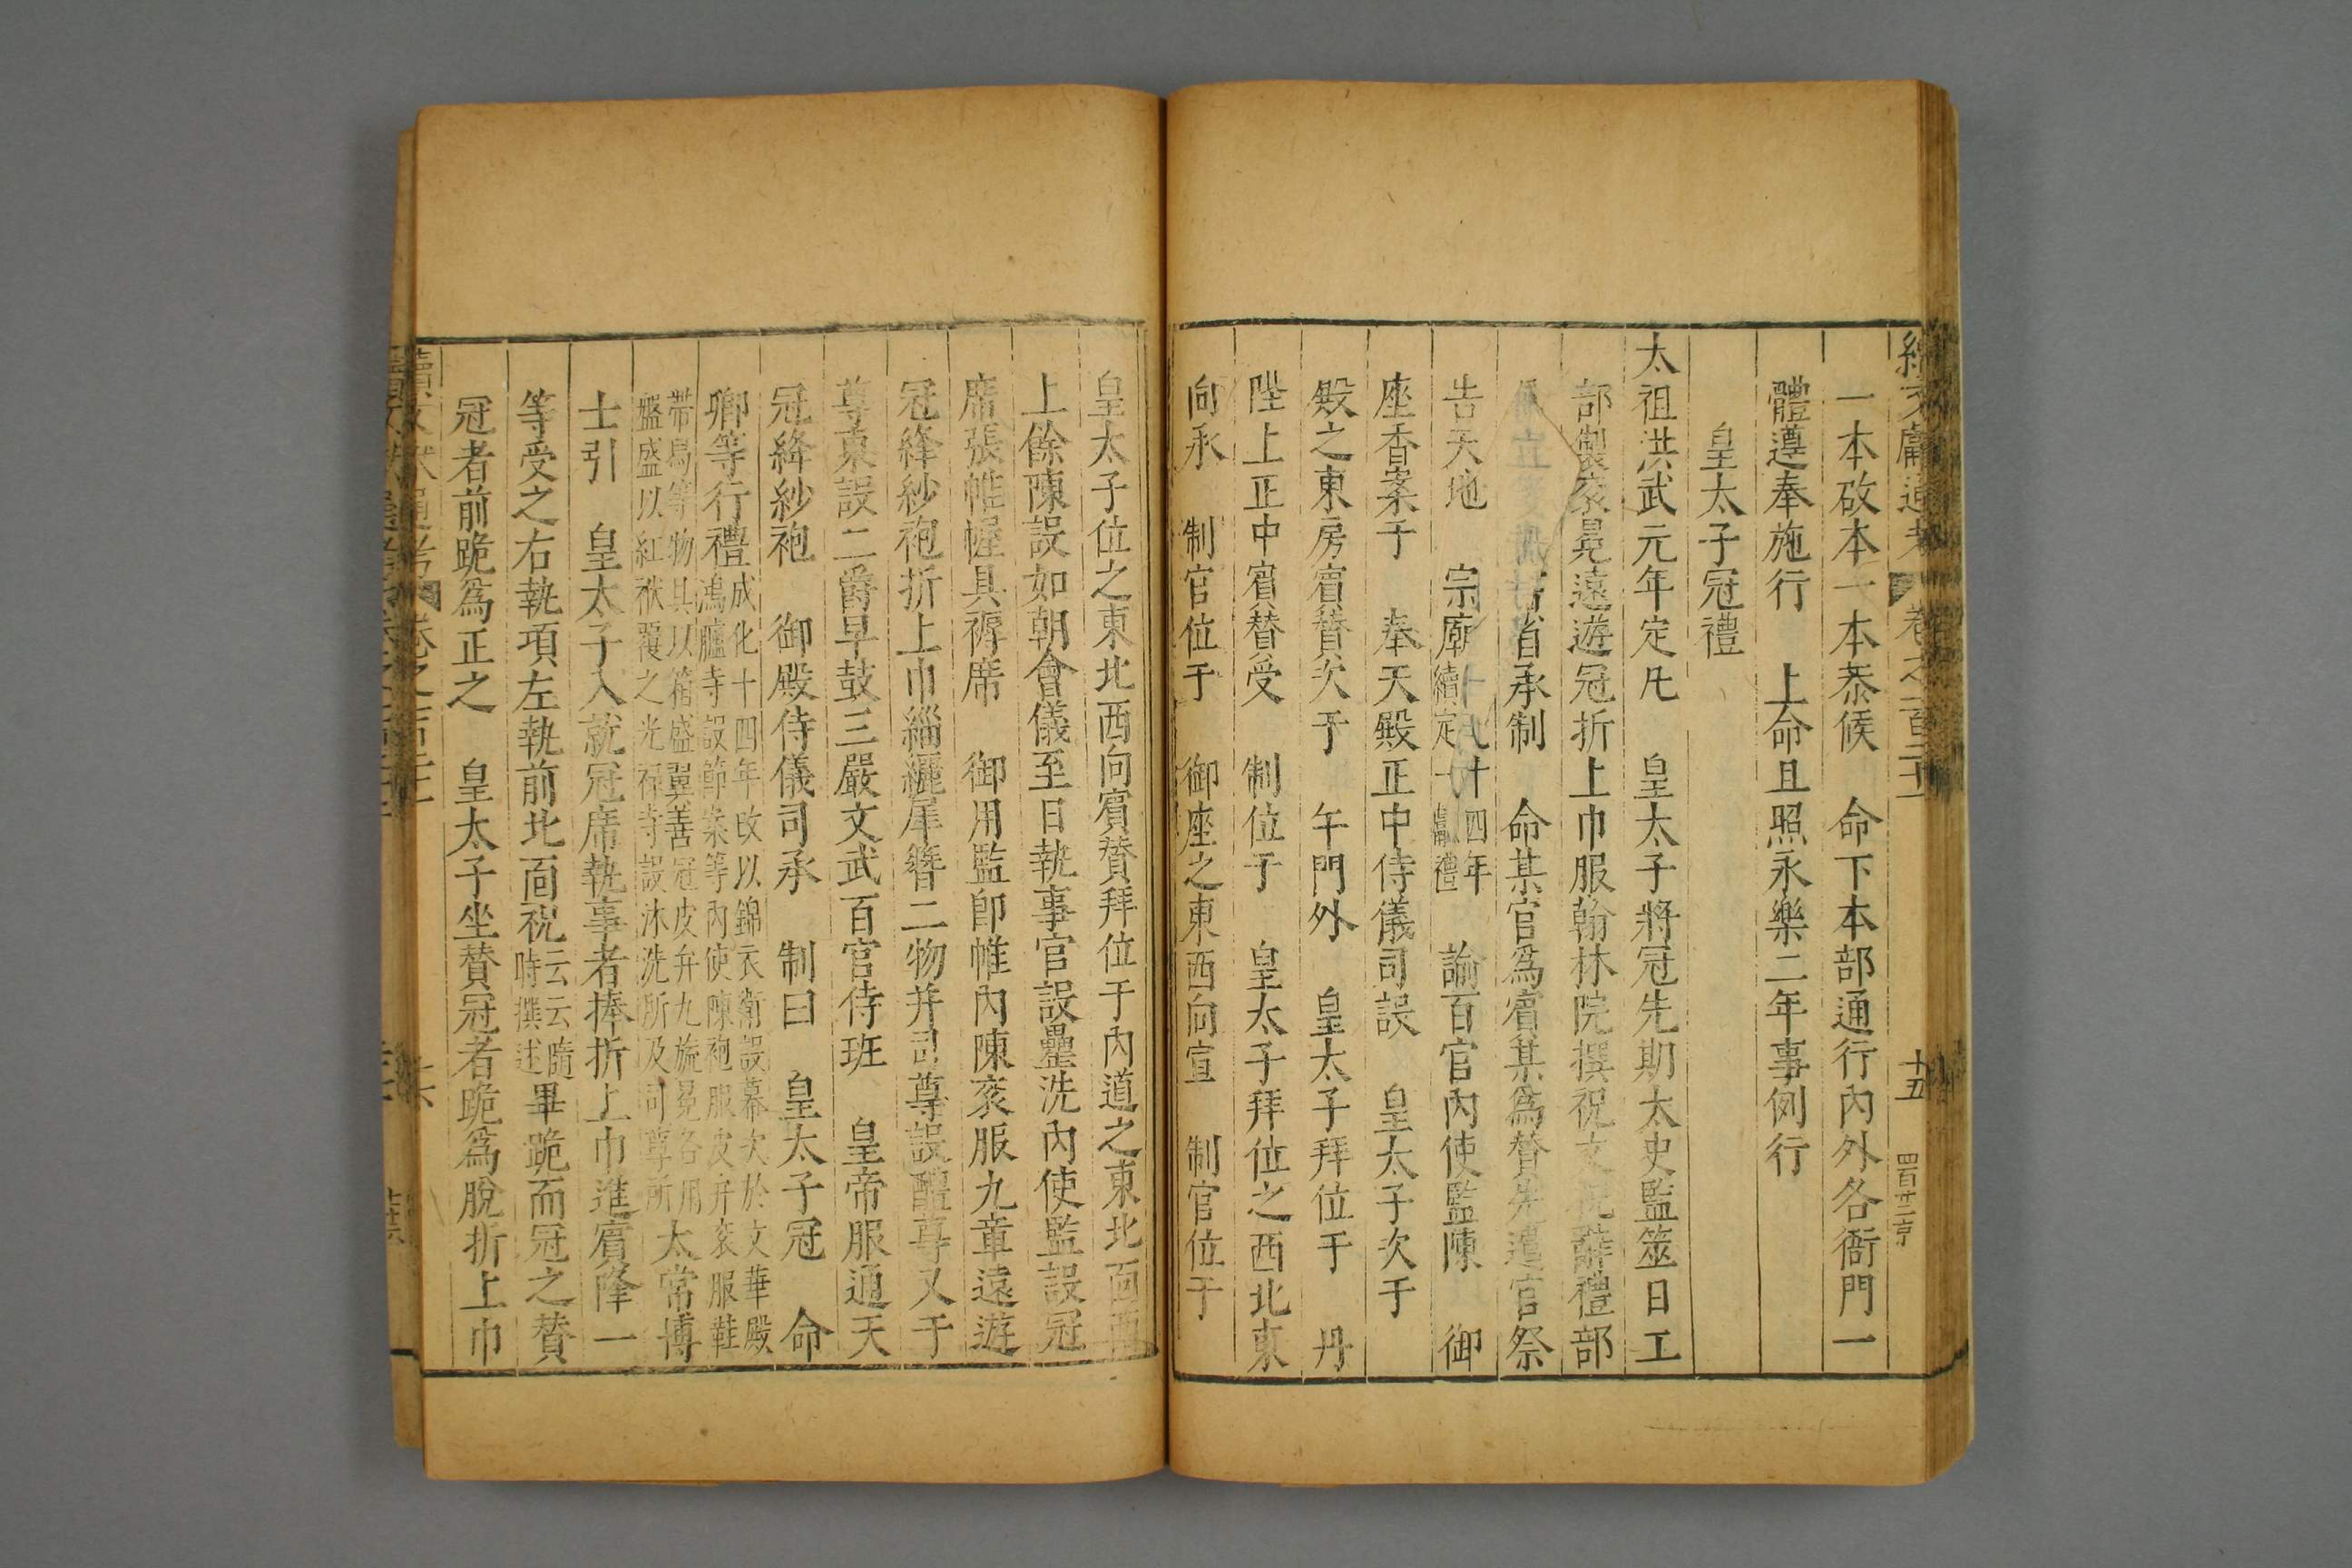 續文獻通考 卷之一百二十 十五 四百廿三
一本改本一本恭候 命下本部通行內外各衙門一
體遵奉施行 上命且照永樂二年事例行
皇太子冠禮
太祖洪武元年定凡 皇太子將冠先期太史監筮日工
部製袞冕遠遊冠折上巾服翰林院撰祝文祝辭禮部
省承制 命某官爲賓某爲贊先遣官祭
告天地 宗廟 續定 十四年 禮 諭百官內使監陳 御
座香案于 奉天殿正中侍儀司設 皇太子次于
殿之東房賓贊次于 午門外 皇太子拜位于 丹
陛上正中賓贊受 制位于 皇太子拜位之西北東
向承 制官位于 御座之東西向宣 制官位于
皇太子位之東北西向賓贊拜位于內道之東北面西
上餘陳設如朝會儀至日執事官設罍洗內使監設冠
席張帷幄具褥席 御用監卽帷內陳袞服九章遠遊
冠絳紗袍折上巾緇纚犀簪二物并司尊設醴尊又于
尊東設二爵早鼓三嚴文武百官侍班 皇帝服通天
冠絳紗袍 御殿侍儀司承 制曰 皇太子冠 命
卿等行禮 成化十四年改以錦衣衛設幕次於文華殿
鴻臚寺設節案等內使陳袍服皮弁袞服鞋
帶舄等物具以箱盛翼善冠皮弁九旒冕各用
盤盛以紅袱覆之光祿寺設沐洗所及司尊所 太常博
士引 皇太子入就冠席執事者捧折上巾進賓降一
等受之右執項左執前北面祝 云云隨時撰述 畢跪而冠之贊
冠者前跪爲正之 皇太子坐贊冠者跪爲脫折上巾